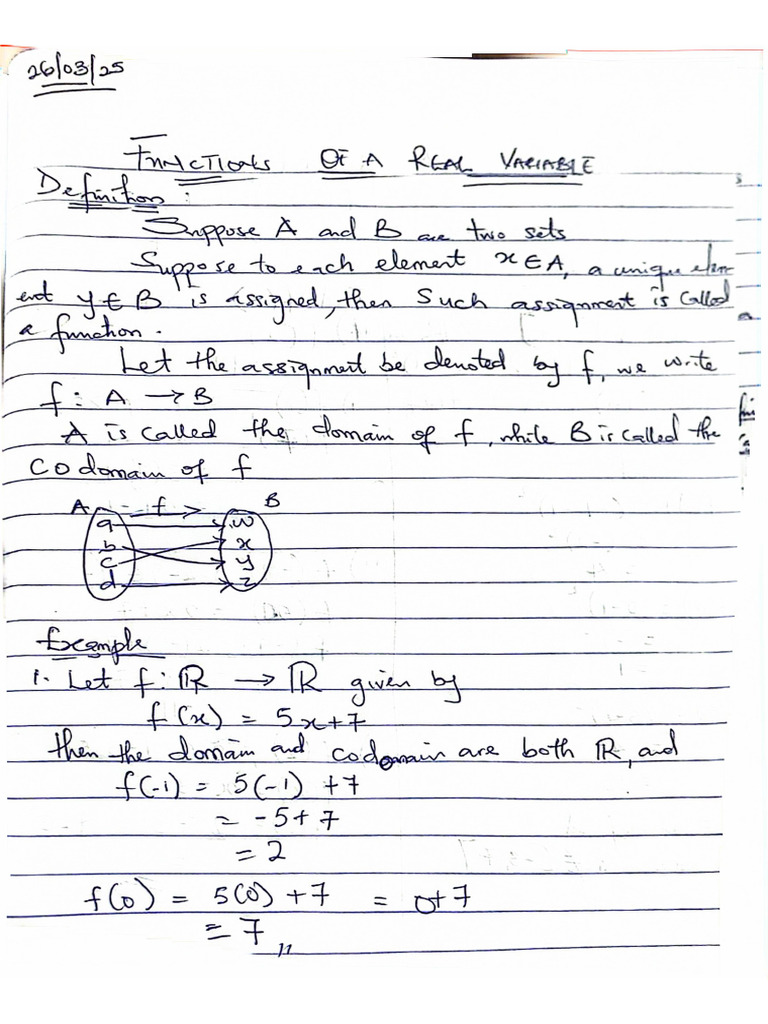 26/03/25
FUNCTIONS OF A REAL VARIABLE
Definition:
Suppose A and B are two sets
Suppose to each element x∈A, a unique elem-
ent y∈B is assigned, then such assignment is called
a function.
Let the assignment be denoted by f, we write
f: A → B
A is called the domain of f, while B is called the
codomain of f
A f B
a w
b x
c y
d z
Example
1. Let f: ℝ → ℝ given by
f(x) = 5x+7
then the domain and codomain are both ℝ, and
f(-1) = 5(-1) +7
= -5+7
= 2
f(0) = 5(0)+7 = 0+7
= 7 //